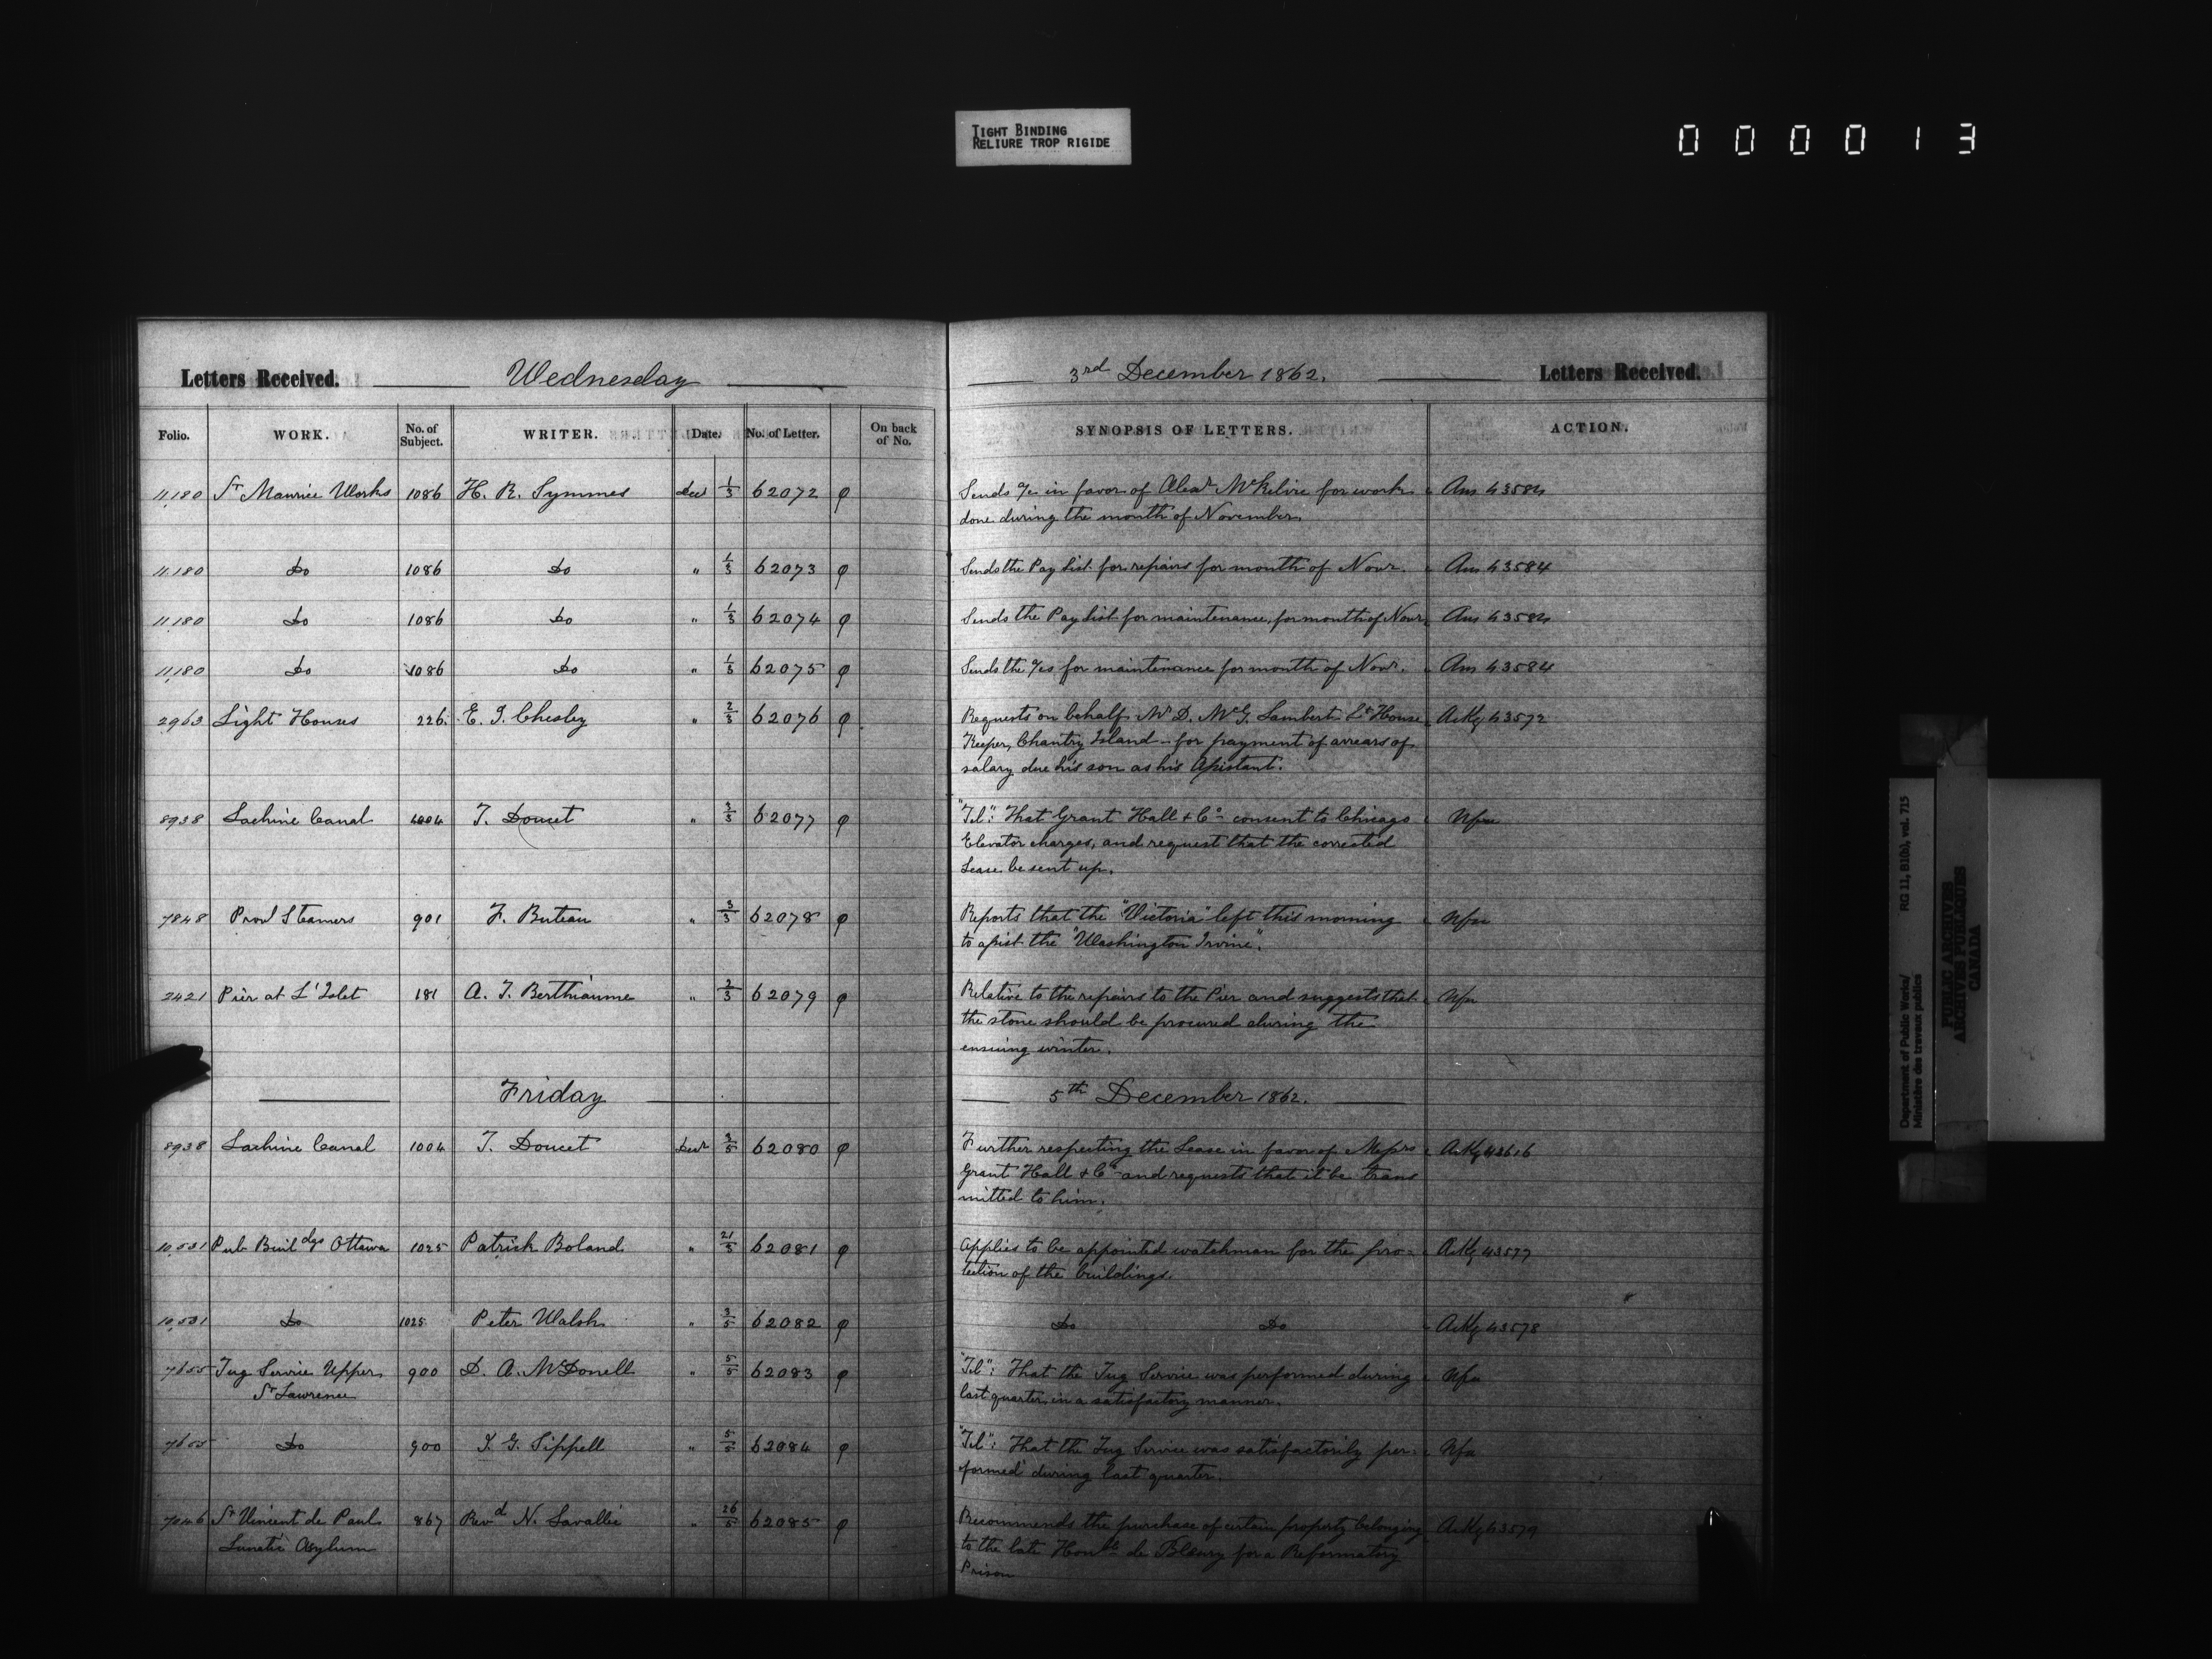 TIGHT BINDING
RELIURE TROP RIGIDE
000013
Letters Received. Wednesday 3rd December 1862. Letters Received.
Folio. WORK. No. of Subject. WRITER. Date. No. of Letter. On back of No. SYNOPSIS OF LETTERS. ACTION.
11,180 St Maurice Works 1086 H. R. Symmes Decr 1/3 62072 Sends a/c in favor of Alexr McKelvie for work Ans 43584
done during the month of November.
11,180 Do 1086 Do " 1/3 62073 Sends the Pay List for repairs for month of Novr. Ans 43584
11,180 Do 1086 Do " 1/3 62074 Sends the Pay List for maintenance, for month of Novr. Ans 43584
11,180 Do 1086 Do " 1/3 62075 Sends the a/cs for maintenance for month of Novr. Ans 43584
2963 Light Houses 226 E. J. Chesley " 2/3 62076 Requests on behalf Mr D. McG. Lambert Lt House Ackg 43572
Keeper, Chantry Island - for payment of arrears of
salary due his son as his Assistant.
8938 Lachine Canal 1004 T. Doucet " 3/3 62077 "Tel": That Grant Hall & Co consent to Chicago Nfa
Elevator charges, and request that the corrected
Lease be sent up.
7848 Provl Steamers 901 F. Buteau " 3/3 62078 Reports that the "Victoria" left this morning Nfa
to assist the "Washington Irvine".
2421 Pier at L'Islet 181 A. T. Berthiaume " 2/3 62079 Relative to the repairs to the Pier and suggests that Nfa
the stone should be procured during the
ensuing winter.
Friday 5th December 1862.
8938 Lachine Canal 1004 T. Doucet Decr 3/5 62080 Further respecting the Lease in favor of Messrs Ackg 43616
Grant Hall & Co and requests that it be trans
mitted to him.
10,531 Pub Buildgs Ottawa 1025 Patrick Boland " 21/5 62081 Applies to be appointed watchman for the pro- Ackg 43577
tection of the buildings.
10,531 Do 1025 Peter Walsh " 3/5 62082 Do Do Ackg 43578
7655 Tug Service Upper 900 D. A. McDonell " 5/5 62083 "Tel": That the Tug Service was performed during Nfa
St Lawrence last quarter in a satisfactory manner.
7655 Do 900 J. G. Sippell " 5/5 62084 "Tel": That the Tug Service was satisfactorily per- Nfa
formed during last quarter.
7046 St Vincent de Paul 867 Revd N. Lavallée " 26/5 62085 Recommends the purchase of certain property belonging Ackg 43579
Lunatic Asylum to the late Honble de Bleury for a Reformatory
Prison
Department of Public Works/
Ministère des travaux publics
RG 11, B1(b), vol. 715
PUBLIC ARCHIVES
ARCHIVES PUBLIQUES
CANADA